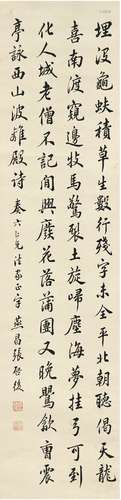 埋沒龜趺積草生數行殘字未全平北朝聽偈天龍
喜南渡窺邊牧馬驚裂土旋歸塵海夢挂弓可到
化人城老僧不記閒興廢花落蒲團又晚鸎歙曹震
亭詠西山波羅殿詩 六仁兄法家正字 燕昌張啓後